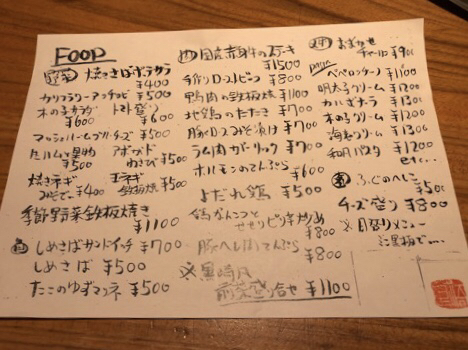 FOOD
野菜 焼きさばポテサラ ¥400
カリフラワーアンチョビ ¥500
木の子サラダ ¥600
トマト盛り ¥600
マッシュルームブルーチーズ ¥500
アボカドわさび ¥500
焼きネギみそで… ¥400
玉ネギ鉄板焼 ¥500
季節野菜鉄板焼き ¥1100
しめさばサンドイッチ ¥700
しめさば ¥500
たこのゆずマリネ ¥500
肉 国産赤身牛のステーキ ¥1500
手作りローストビーフ ¥800
鴨肉の鉄板焼 ¥1100
地鶏のたたき ¥700
豚ロースみそ漬け ¥700
ラム肉ガーリック ¥700
ホルモンのてんぷら ¥600
よだれ鶏 ¥500
鶏なんこつとせせりピリ辛炒め ¥800
豚ヘレ肉てんぷら ¥800
※黒崎风
前菜盛り合せ ¥1100
おまかせチャーハン ¥900
ペペロンチーノ ¥1100
明太子クリーム ¥1200
カルボナーラ ¥1300
木の子クリーム ¥1200
海老クリーム ¥1300
和風パスタ ¥1200
etc…
ふぐのへしこ ¥500
チーズ盛り ¥800
※日替りメニュー
黒板で…